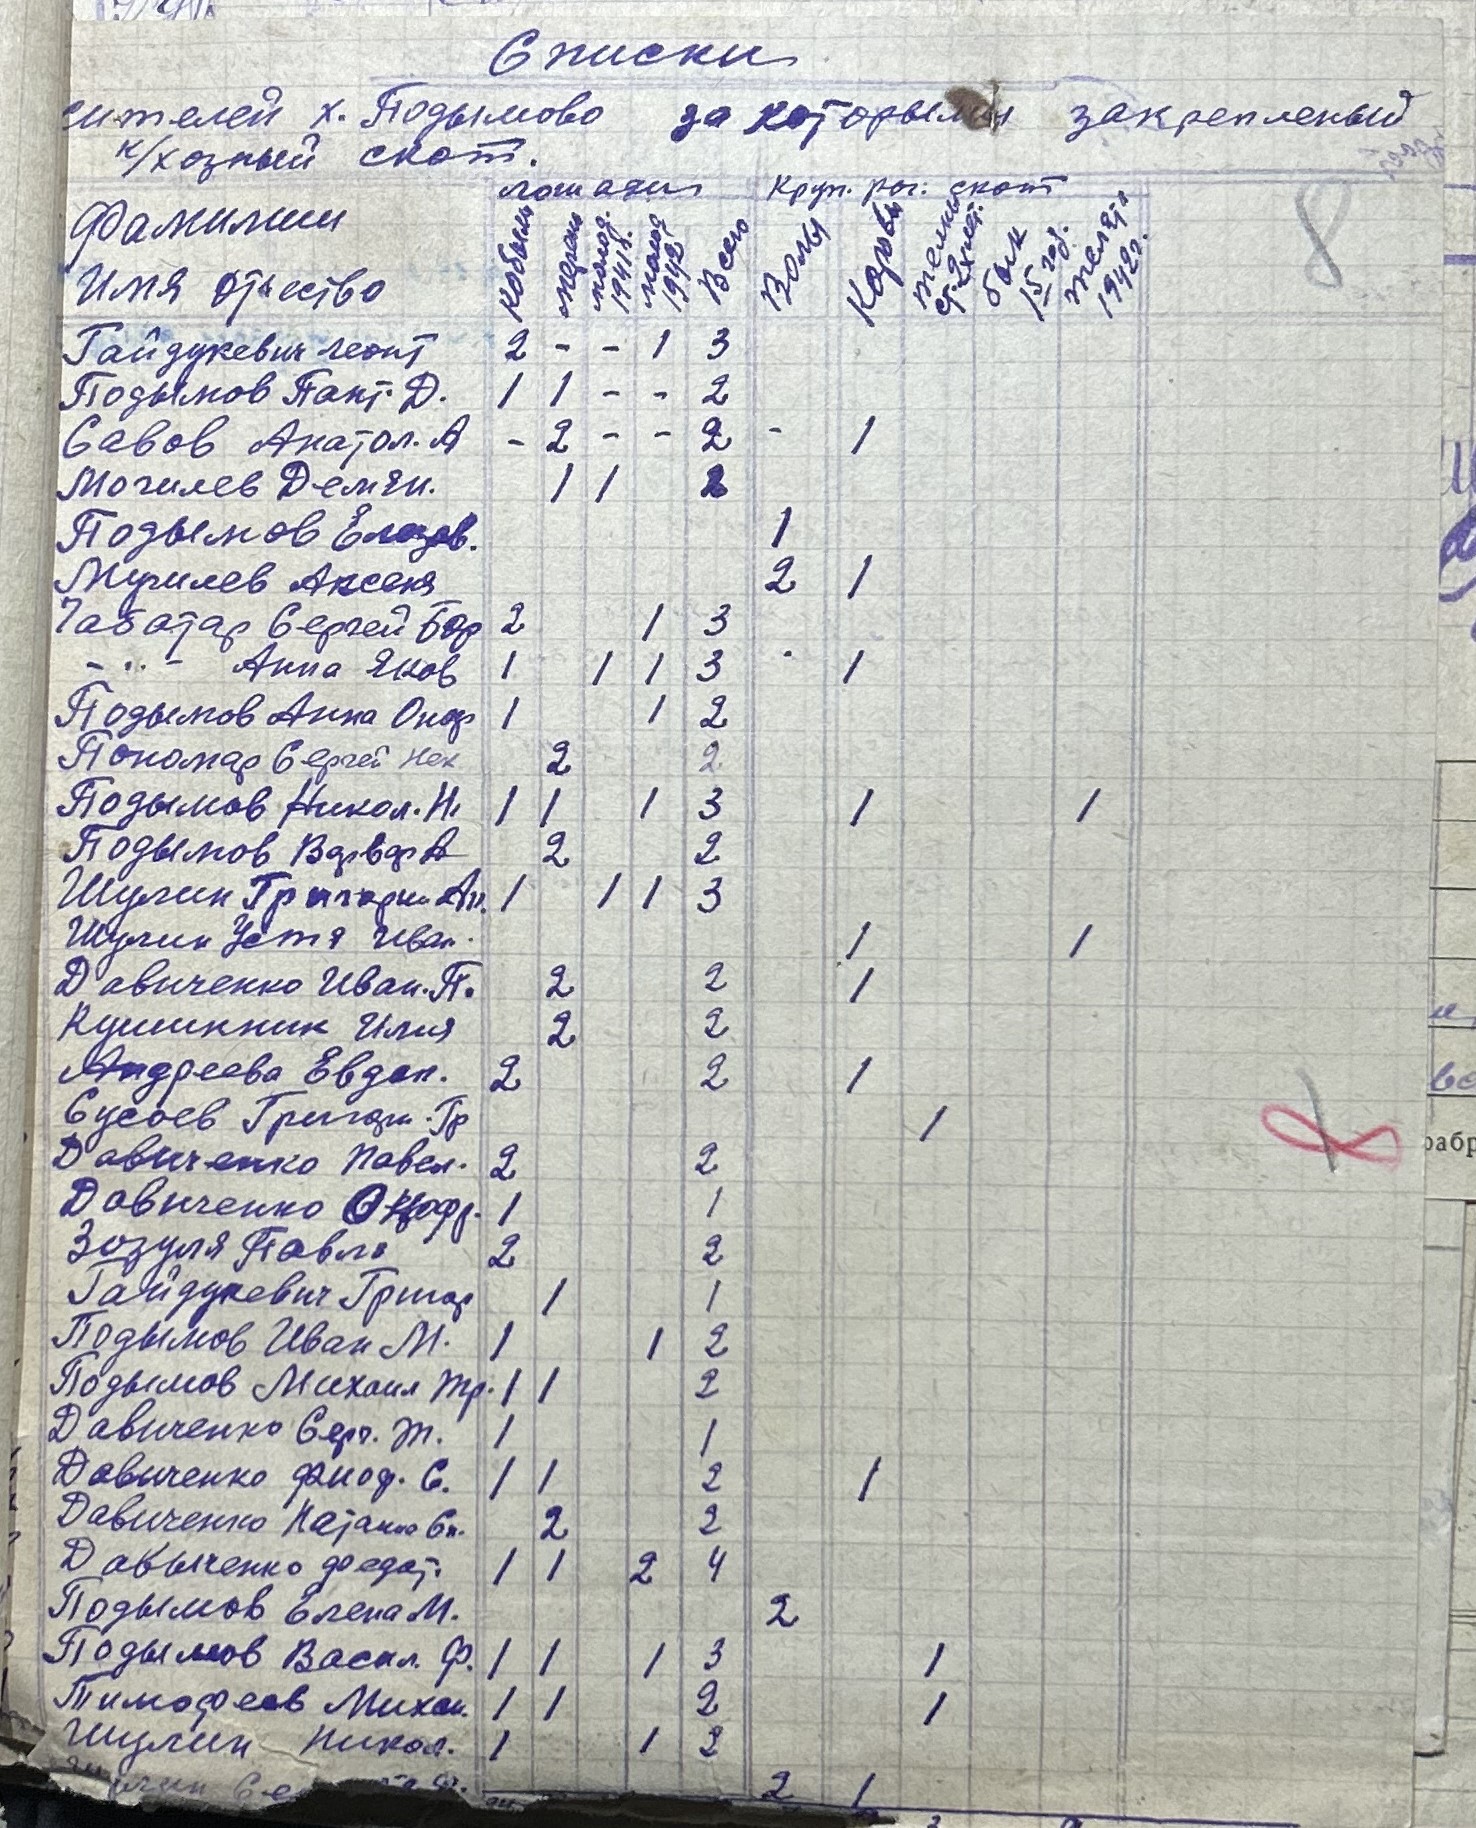 Списки
жителей х. Подымово за которыми закрепленый
к/хозный скот.
лошади Круп. рог. скот
8
Фамилии
Имя отчество
кобылы мерин молод. 1941г. молод 1942 Всего Волы Коровы телки ст. 2х лет. бык 1,5 год. телята 1942г.
Гайдукевич Леонт 2 - - 1 3
Подымов Пант. Д. 1 1 - - 2
Савов Анатол. А - 2 - - 2 - 1
Могилев Демян. 1 1 2
Подымов 1
Мугилев Аксеня 2 1
Чабатар Сергей Бор 2 1 3
- " - Анна Яков 1 1 1 3 1
Подымов Анна Оноф 1 1 2
Пономар Сергей 2 2
Подымов Никол. Н. 1 1 1 3 1 1
Подымов 2 2
Шулин Григории Ан. 1 1 1 3
Шулин Устя Иван. 1 1
Давиченко Иван. П. 2 2 1
Кушикник Илия 2 2
Андреева Евдок. 2 2 1
Сусоев Григори. Гр 1
Давиченко Павел. 2 2
Довиченко Онофр. 1 1
Зозуля Павло 2 2
Гайдукевич Григор 1 1
Подымов Иван М. 1 1 2
Подымов Михаил Тр. 1 1 2
Давиченко Серг. Т. 1 1
Довиченко Фиод. С. 1 1 2 1
Давиченко Наталия 2 2
Давыченко Федот. 1 1 2 4
Подымов Елена М. 2
Подымов Васил. Ф. 1 1 1 3 1
Тимофеев Михаи. 1 1 2 1
Шулин Никол. 1 1 2
2 1